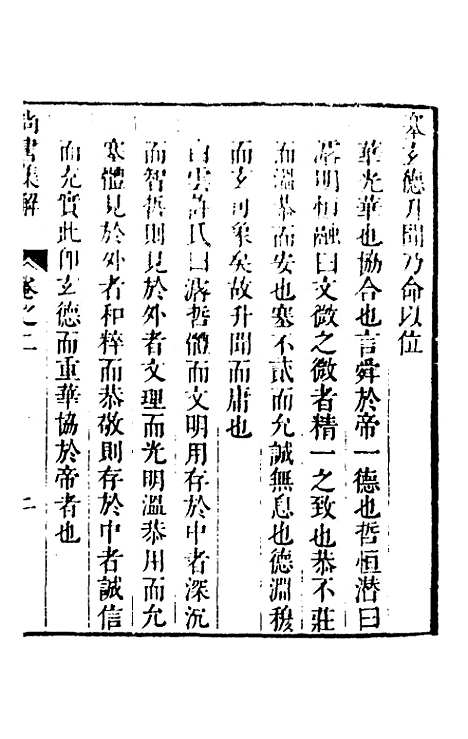 塞玄德升聞乃命以位
華光華也協合也言舜於帝一德也哲恒潛曰
濬明恒融曰文微之微者精一之致也恭不莊
而溫恭而安也塞不貳而允誠無息也德淵穆
而玄可象矣故升聞而庸也
白雲許氏曰濬哲體而文明用存於中者深沉
而智哲則見於外者文理而光明溫恭用而允
塞體見於外者和粹而恭敬則存於中者誠信
而充實此卽玄德而重華協於帝者也
尚書集解
卷之二
二